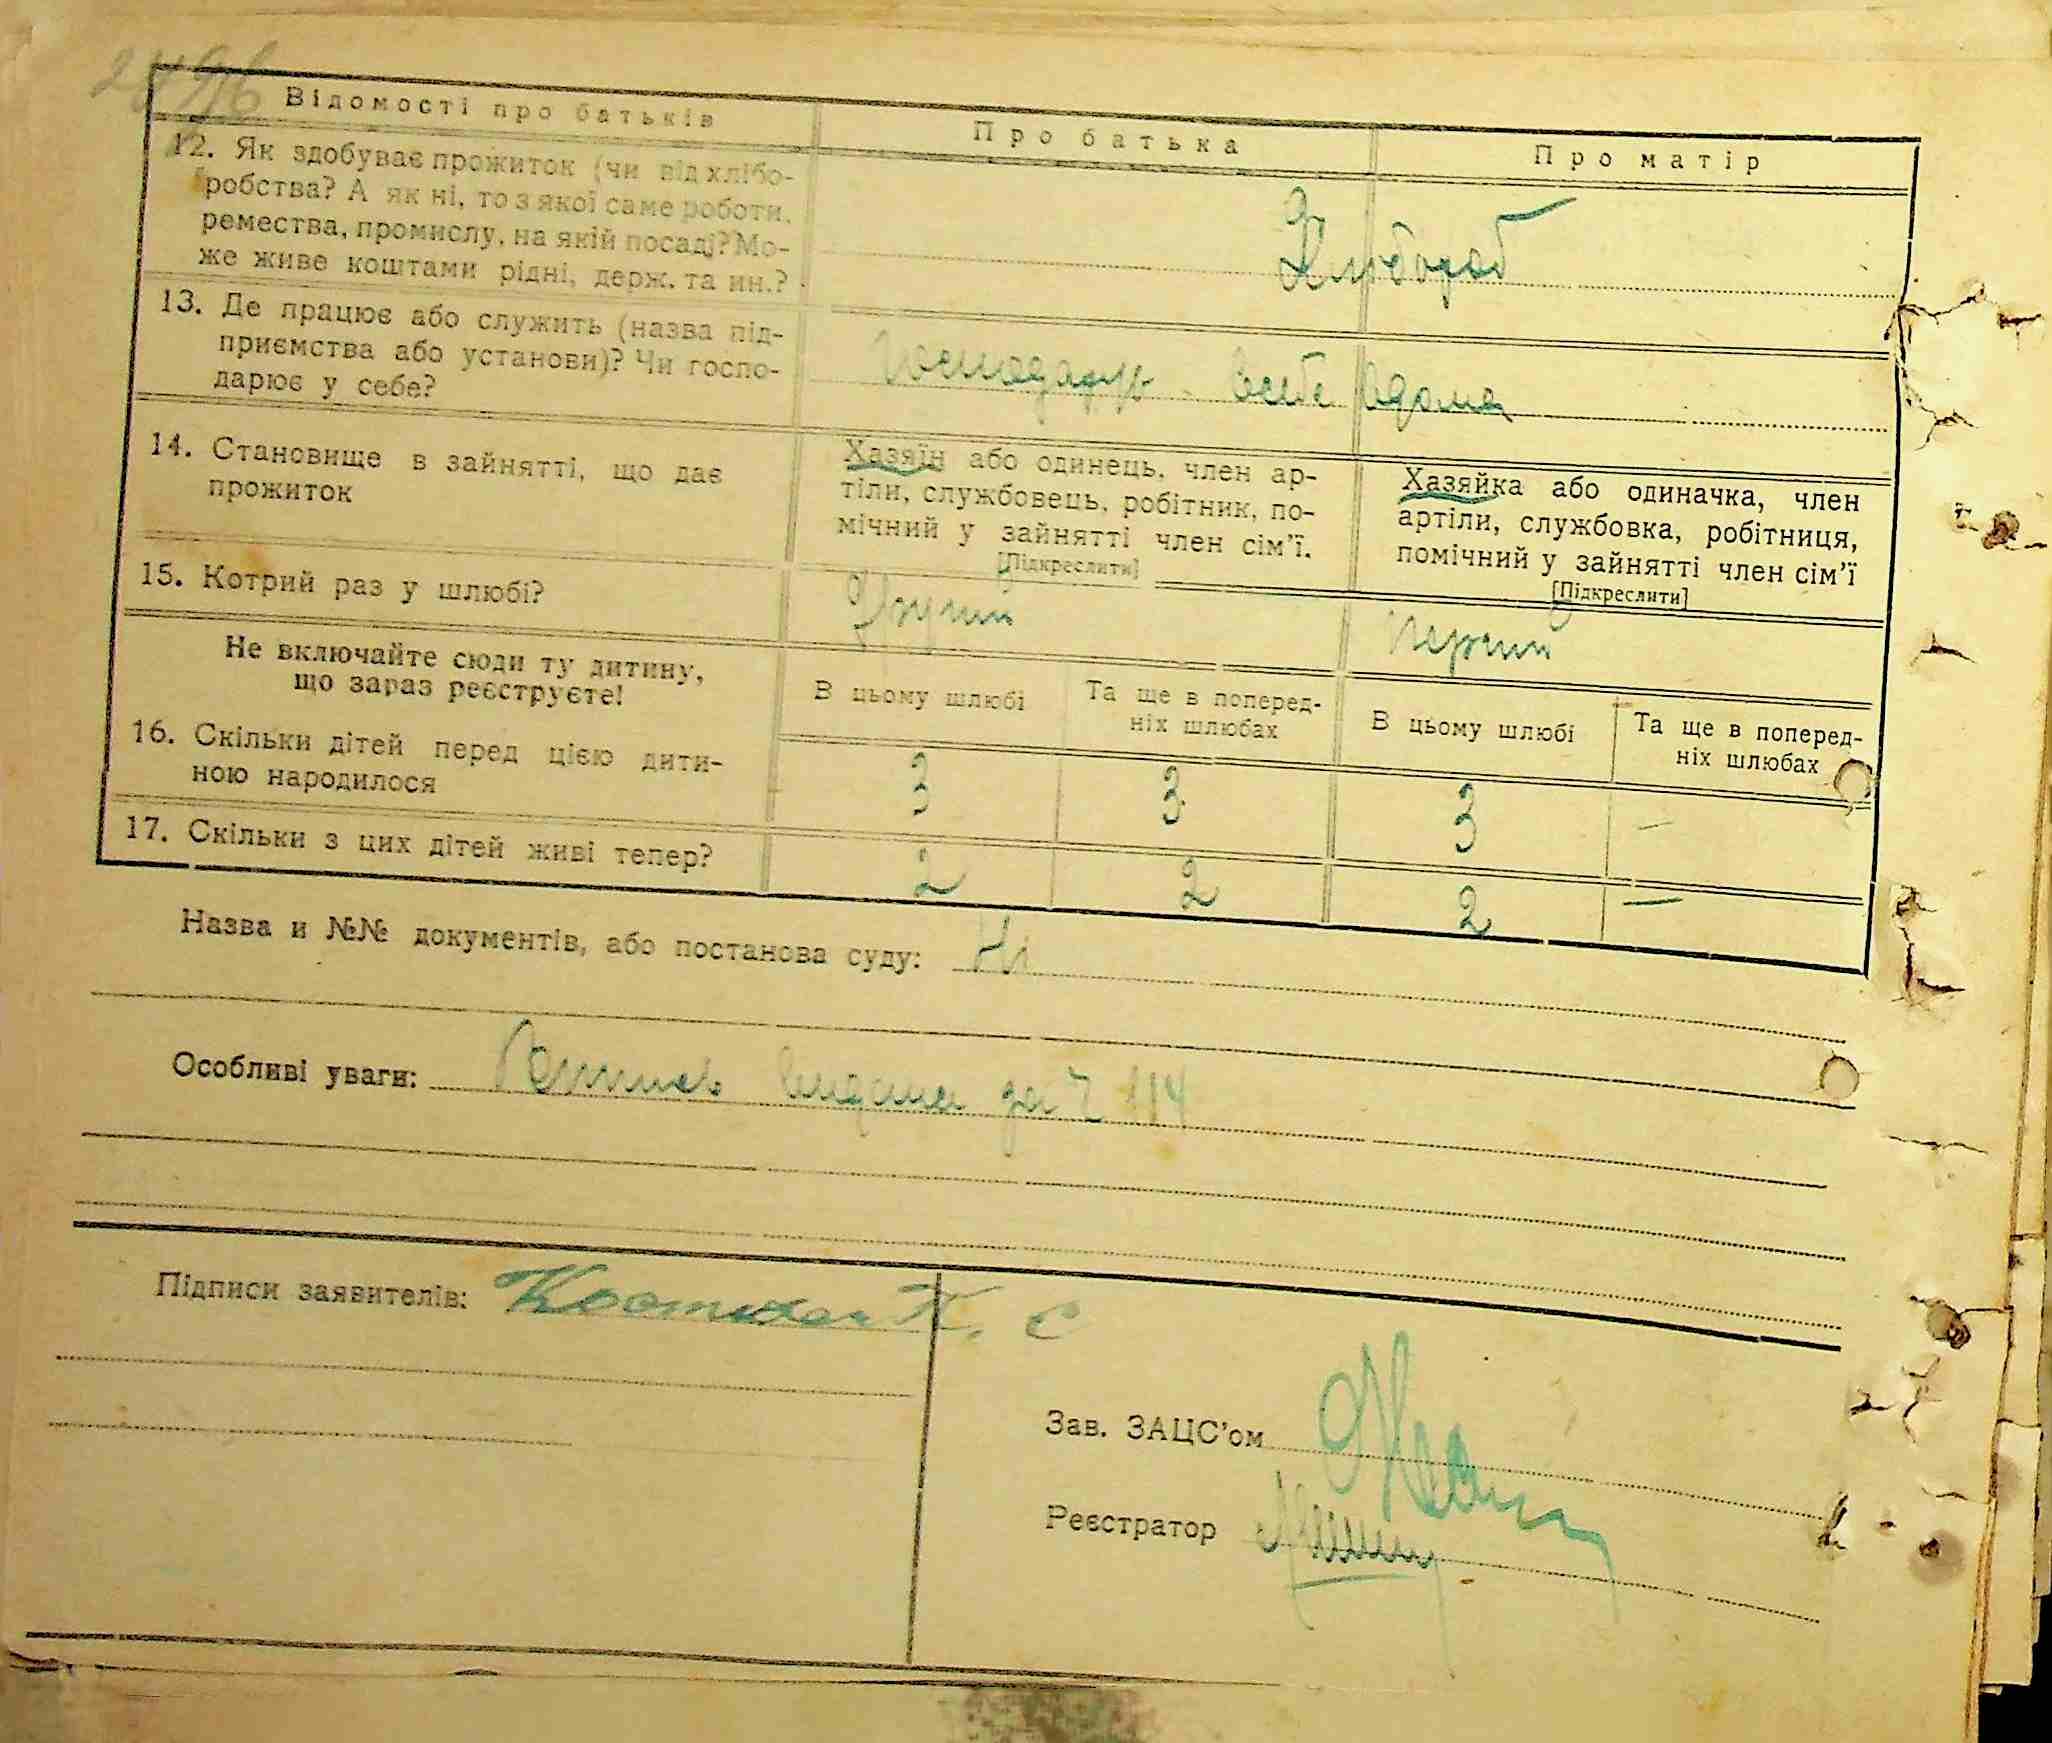 Відомості про батьків
Про батька
Про матір
12. Як здобуває прожиток (чи від хлібо-
робства? А як ні, то з якої саме роботи,
ремества, промислу, на якій посаді? Мо-
же живе коштами рідні, держ. та ин.?
Хлібороб
13. Де працює або служить (назва під-
приємства або установи)? Чи госпо-
дарює у себе?
Господарує в себе вдома
14. Становище в зайнятті, що дає
прожиток
Хазяїн або одинець, член ар-
тіли, службовець, робітник, по-
мічний у зайнятті член сім'ї.
[Підкреслити]
Хазяйка або одиначка, член
артіли, службовка, робітниця,
помічний у зайнятті член сім'ї
[Підкреслити]
15. Котрий раз у шлюбі?
Другий
Перший
Не включайте сюди ту дитину,
що зараз реєструєте!
В цьому шлюбі
Та ще в поперед-
ніх шлюбах
В цьому шлюбі
Та ще в поперед-
ніх шлюбах
16. Скільки дітей перед цією дити-
ною народилося
3 3 3 —
17. Скільки з цих дітей живі тепер?
2 2 2 —
Назва и №№ документів, або постанова суду: Ні
Особливі уваги: видана за Ч 114
Підписи заявителів: К. С
Зав. ЗАЦС'ом
Реєстратор